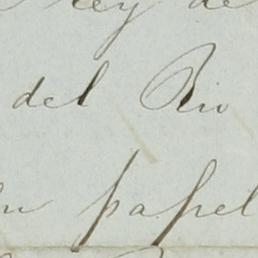 ley de
del Rio
papel